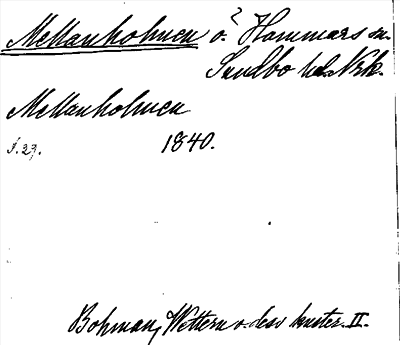 Mellanholmen ö.? Hammars sn.
Sundbo hd. Nrk.
Mellanholmen
s. 23. 1840.
Bohman, Wettern o. dess kuster. II.